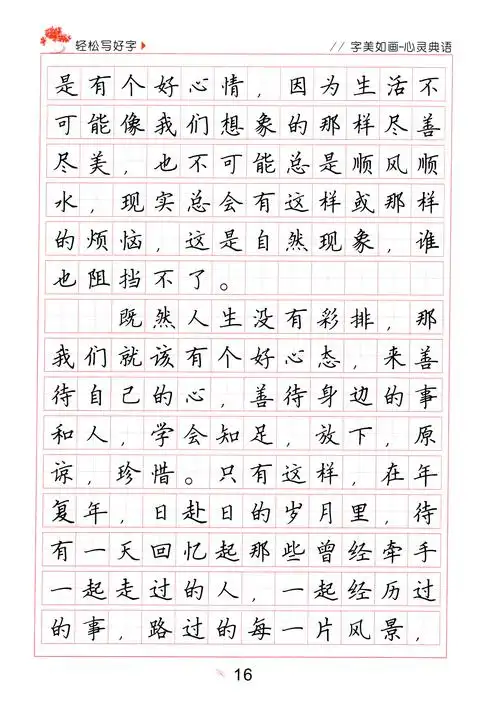 轻松写好字
// 字美如画-心灵典语
是有个好心情，因为生活不
可能像我们想象的那样尽善
尽美，也不可能总是顺风顺
水，现实总会有这样或那样
的烦恼，这是自然现象，谁
也阻挡不了。
既然人生没有彩排，那
我们就该有个好心态，来善
待自己的心，善待身边的事
和人，学会知足，放下，原
谅，珍惜。只有这样，在年
复年，日赴日的岁月里，待
有一天回忆起那些曾经牵手
一起走过的人，一起经历过
的事，路过的每一片风景，
16